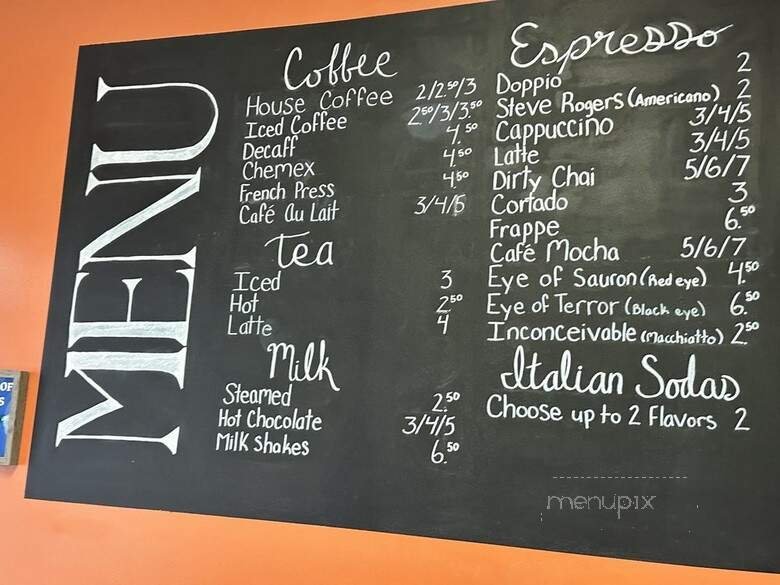 MENU
Coffee
House Coffee 2/2.50/3
Iced Coffee 2.50/3/3.50
Decaff 4.50
Chemex 4.50
French Press 4.50
Café Au Lait 3/4/5
Tea
Iced 3
Hot 2.50
Latte 4
Milk
Steamed 2.50
Hot Chocolate 3/4/5
Milk Shakes 6.50
Espresso
Doppio 2
Steve Rogers (Americano) 2
Cappuccino 3/4/5
Latte 3/4/5
Dirty Chai 5/6/7
Cortado 3
Frappe 6.50
Café Mocha 5/6/7
Eye of Sauron (Red eye) 4.50
Eye of Terror (Black eye) 6.50
Inconceivable (Macchiatto) 2.50
Italian Sodas
Choose up to 2 Flavors 2
OF
menupix